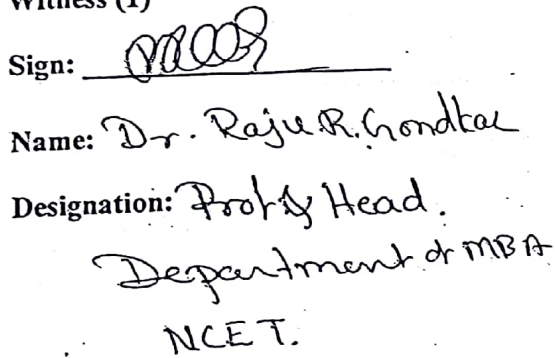 Witness (1)
Sign:
Name: Dr. Raju R. Gondkar
Designation: Prof & Head.
Department of MBA
NCET.